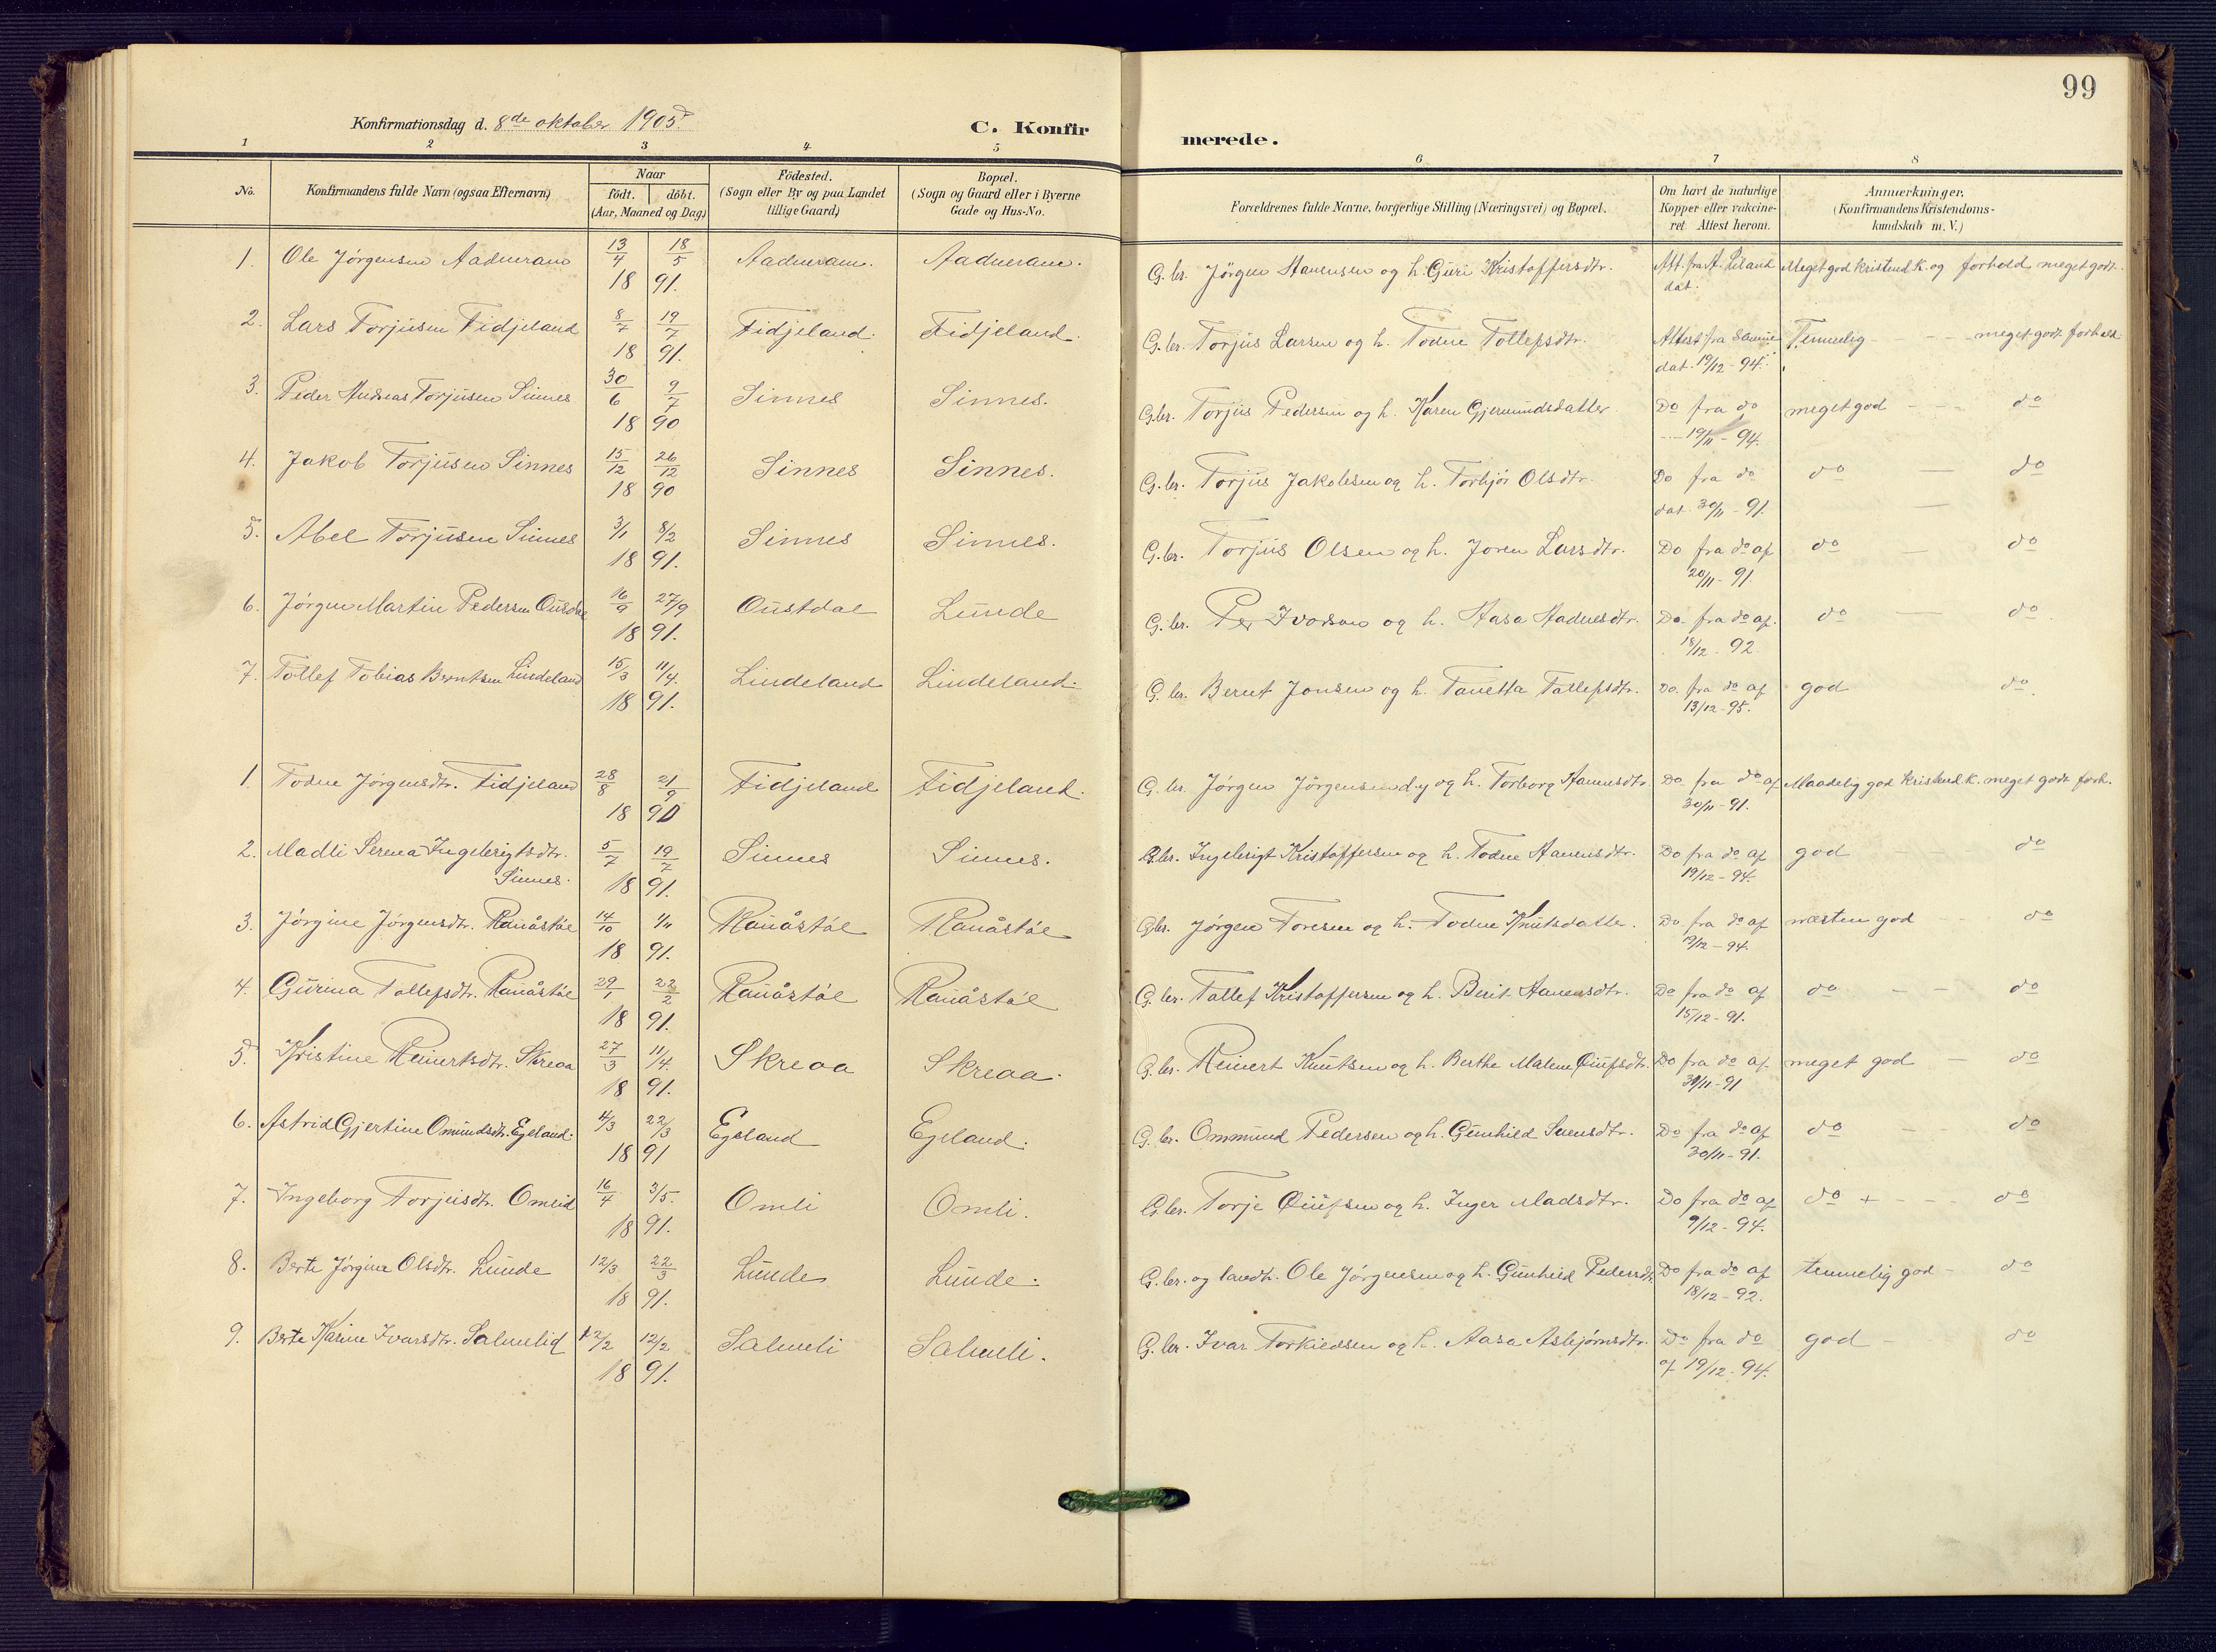 99
Konfirmationsdag d. 8de oktober 1905. C. Konfirmerede.
1 2 3 4 5 6 7 8
No.
Konfirmandens fulde Navn (ogsaa Efternavn)
Naar
födt. döbt.
(Aar, Maaned og Dag)
Födested.
(Sogn eller By og paa Landet
tillige Gaard)
Bopæl.
(Sogn og Gaard eller i Byerne
Gade og Hus-No.
Forældrenes fulde Navne, borgerlige Stilling (Næringsvei) og Bopæl.
Om havt de naturlige
Kopper eller vakcine-
ret Attest herom.
Anmærkninger.
(Konfirmandens Kristendoms-
kundskab m. V.)
1. Ole Jörgensen Aadneram 13/4 18/5 Aadneram. Aadneram. G. br. Jörgen Hanensen og h. Guri Kristoffersdtr. Att. fra A. Liland Meget god kristend k. og forhold meget godt.
18 91. dat.
2. Lars Torjüsen Fidjeland 8/7 19/7 Fidjeland. Fidjeland. G. br. Torjüs Larsen og h. Todne Tollefsdtr. Attest fra samme Temmelig - - - meget godt forhold
18 91. dat. 19/12 - 94.
3. Peder Andreas Torjüsen Sinnes 30/6 9/7 Sinnes Sinnes. G. br. Torjüs Pedersen og h. Karen Gjermundsdatter Do fra do meget god - - - do
18 90 19/11 - 94.
4. Jakob Torjüsen Sinnes 15/12 26/12 Sinnes Sinnes. G. br. Torjüs Jakobsen og h. Torbjör Olsdtr. Do fra do do — do
18 90 dat. 30/11 - 91.
5. Abel Torjüsen Sinnes 3/1 8/2 Sinnes Sinnes. G. br. Torjüs Olsen og h. Joren Larsdtr. Do fra do af do — do
18 91. 20/11 - 91.
6. Jörgen Martin Pedersen Ousdal 16/9 27/9 Oustdal Lunde G. br. Per Ivarsen og h. Aasa Aadnesdtr. Do. fra do af. do — do.
18 91. 18/12 - 92.
7. Tollef Tobias Berntsen Lindeland 15/3 11/4. Lindeland Lindeland. G. br. Bernt Jonsen og h. Tanetta Tallefsdtr. Do. fra do af god do.
18 91. 13/12 - 95.
1. Todne Jörgensdtr. Fidjeland 28/8 21/9 Fidjeland Fidjeland. G. br. Jörgen Jörgensen d.y og h. Torborg Hanensdtr. Do fra do af Maadelig god kristend k. meget godt forh.
18 90 30/11 - 91.
2. Madli Serena Ingebrigtsdtr. 5/7 19/7 Sinnes Sinnes. G. br. Ingebrigt Kristoffersen og h. Todne Hanensdtr. Do fra do af god do
Sinnes. 18 91. 19/12 - 94.
3. Jörgine Jörgensdtr. Raüåstöl 14/10 1/11 Raüåstöl Raüåstöl G. br. Jörgen Toresen og h. Todne Knutsdatter. Do fra do af næsten god - - do
18 91. 19/12 - 94.
4. Gürina Tollefsdtr. Raüåstöl 29/1 22/2 Raüåstöl Raüåstöl G. br. Tallef Kristoffersen og h. Berit Hanensdtr. Do fra do af do - - do
18 91. 15/12 - 91.
5. Kristine Reinertsdtr. Skreaa 27/3 11/4. Skreaa Skreaa. G. br. Reinert Knütsen og h. Berthe Malene Öiüfsdtr. Do fra do af meget god — do
18 91. 30/11 - 91
6. Astrid Gjertine Omündsdtr. Egeland. 4/3 22/3 Egeland Egeland. G. br. Ommünd Pedersen og h. Günhild Svensdtr. Do fra do af do - do
18 91 30/11 - 91.
7. Ingeborg Torjeisdtr. Omlid 16/4 3/5. Omli Omli. G. br. Torje Öiüfsen og h. Inger Madsdtr. Do fra do af do + - - - do
18 91. 9/12 - 94.
8. Berte Jörgine Olsdtr. Lünde 12/3 22/3 Lünde Lünde. G. br. og landh. Ole Jörgensen og h. Günhild Pedersdtr. Do fra do af temmelig god - do
18 91. 18/12 - 92.
9. Berte Karine Ivarsdtr. Salmelid 2/2 12/2 Salmeli Salmeli. G. br. Ivar Torkildsen og h. Aasa Asbjörnsdtr. Do fra do god - do
18 91. af 19/12 - 94.